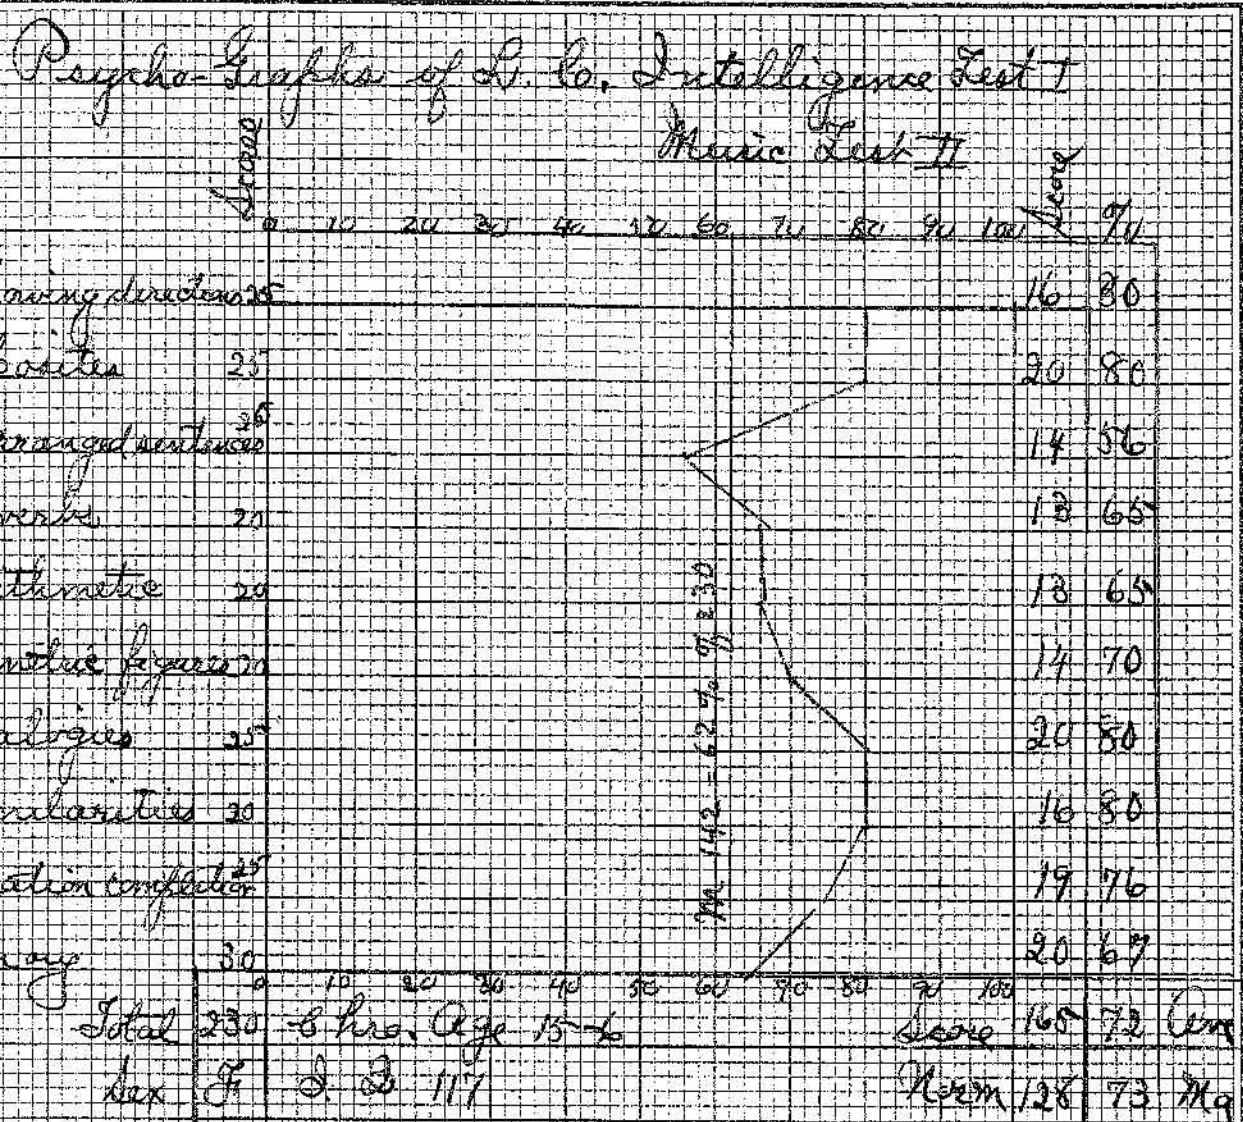 Psycho-Graphs of L. Co. Intelligence Test I
by
Music Test II
Score 0 10 20 30 40 50 60 70 80 90 100 Score %
owing directions 25 16 80
posites 25 20 80
rranged sentences 25 14 56
verbs 20 13 65
ithmetic 20 13 65
metric figures 20 14 70
alogies 25 20 80
milarities 20 16 80
ation completion 25 19 76
ory 30 20 67
M 142 = 62% of 230
0 10 20 30 40 50 60 70 80 90 100
Total 230 Chro. Age 15-6 Score 165 72 Am
Sex F I Q 117 Norm 128 73 Ma